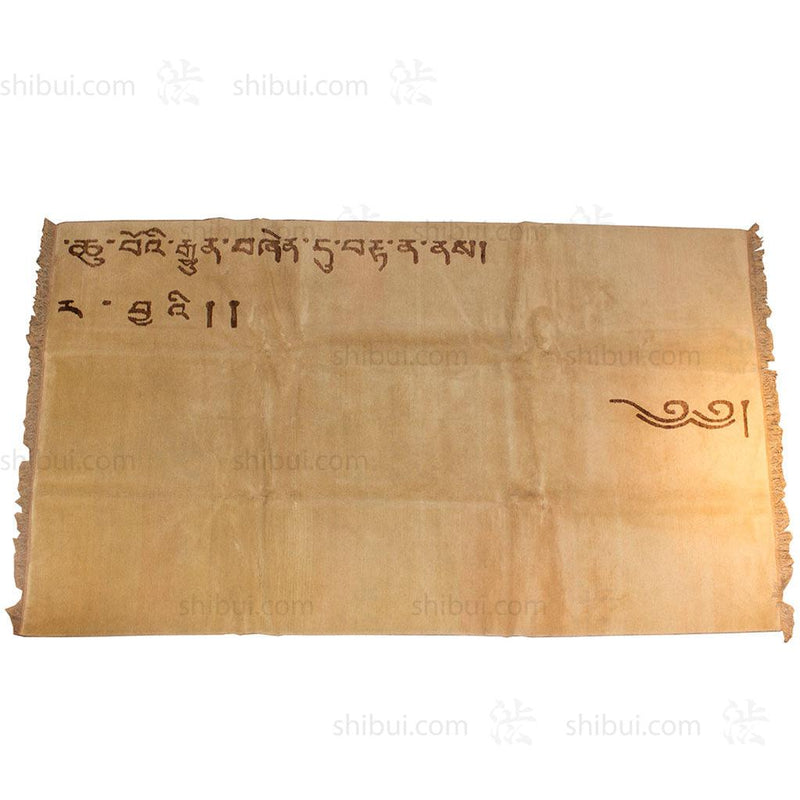 shibui.com 法 shibui.com 法
་ཆུ་བོའི་རྒྱུན་བཞིན་དུ་བརྟ་ན་ནས།
ར ་ བྱ འི ། །
shibui.com
༄༅།
shibui.com shibui.com
shibui.com shibui.com
shibui.com 法 shibui.com 法